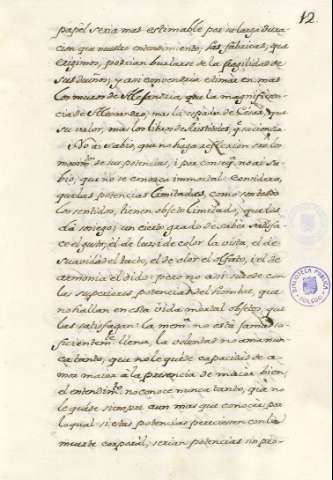 12
papel seria mas estimable por su larga dura-
cion que nuestro entendimiento, las fabricas, que
erigimos, podrian burlarse de la fragilidad de
sus dueños; y asi convenria estimar en mas
los muros de Alexandria, que la magnificen-
cia de Alexandro; mas la espada de Cesar, que
su valor, mas los libros de Aristoteles, q. su ciencia.
No ai Sabio, que no haga reflexion sre los
movim.tos de sus potencias, i por conseq.a no ai Sa-
bio, que no se conozca immortal. Considera,
que las potencias limitadas, como son todos
los sentidos, tienen objeto limitado, que les
da sosiego; un cierto grado de sabor satisfa-
ce el gusto; el de luz, i de color la vista, el de
suavidad el tacto, el de olor el olfato, i el de
armonia el oido: pero no asi sucede con
las superiores potencias del hombre, que
no hallan en esta vida mortal objetos, que
las satisfagan. La mem.a no està jamas su-
ficientem.te llena, la voluntad no ama nun-
ca tanto, que no le quede capacidad de a-
mar mas a la presencia de maior bien,
el entendim.to no conoce nunca tanto, que no
le quede siempre aun mas que conocer; por
lo qual si estas potencias pereciesen con la
muerte corporal, serian potencias no pro-
BIBLIOTECA PUBLICA
TOLEDO